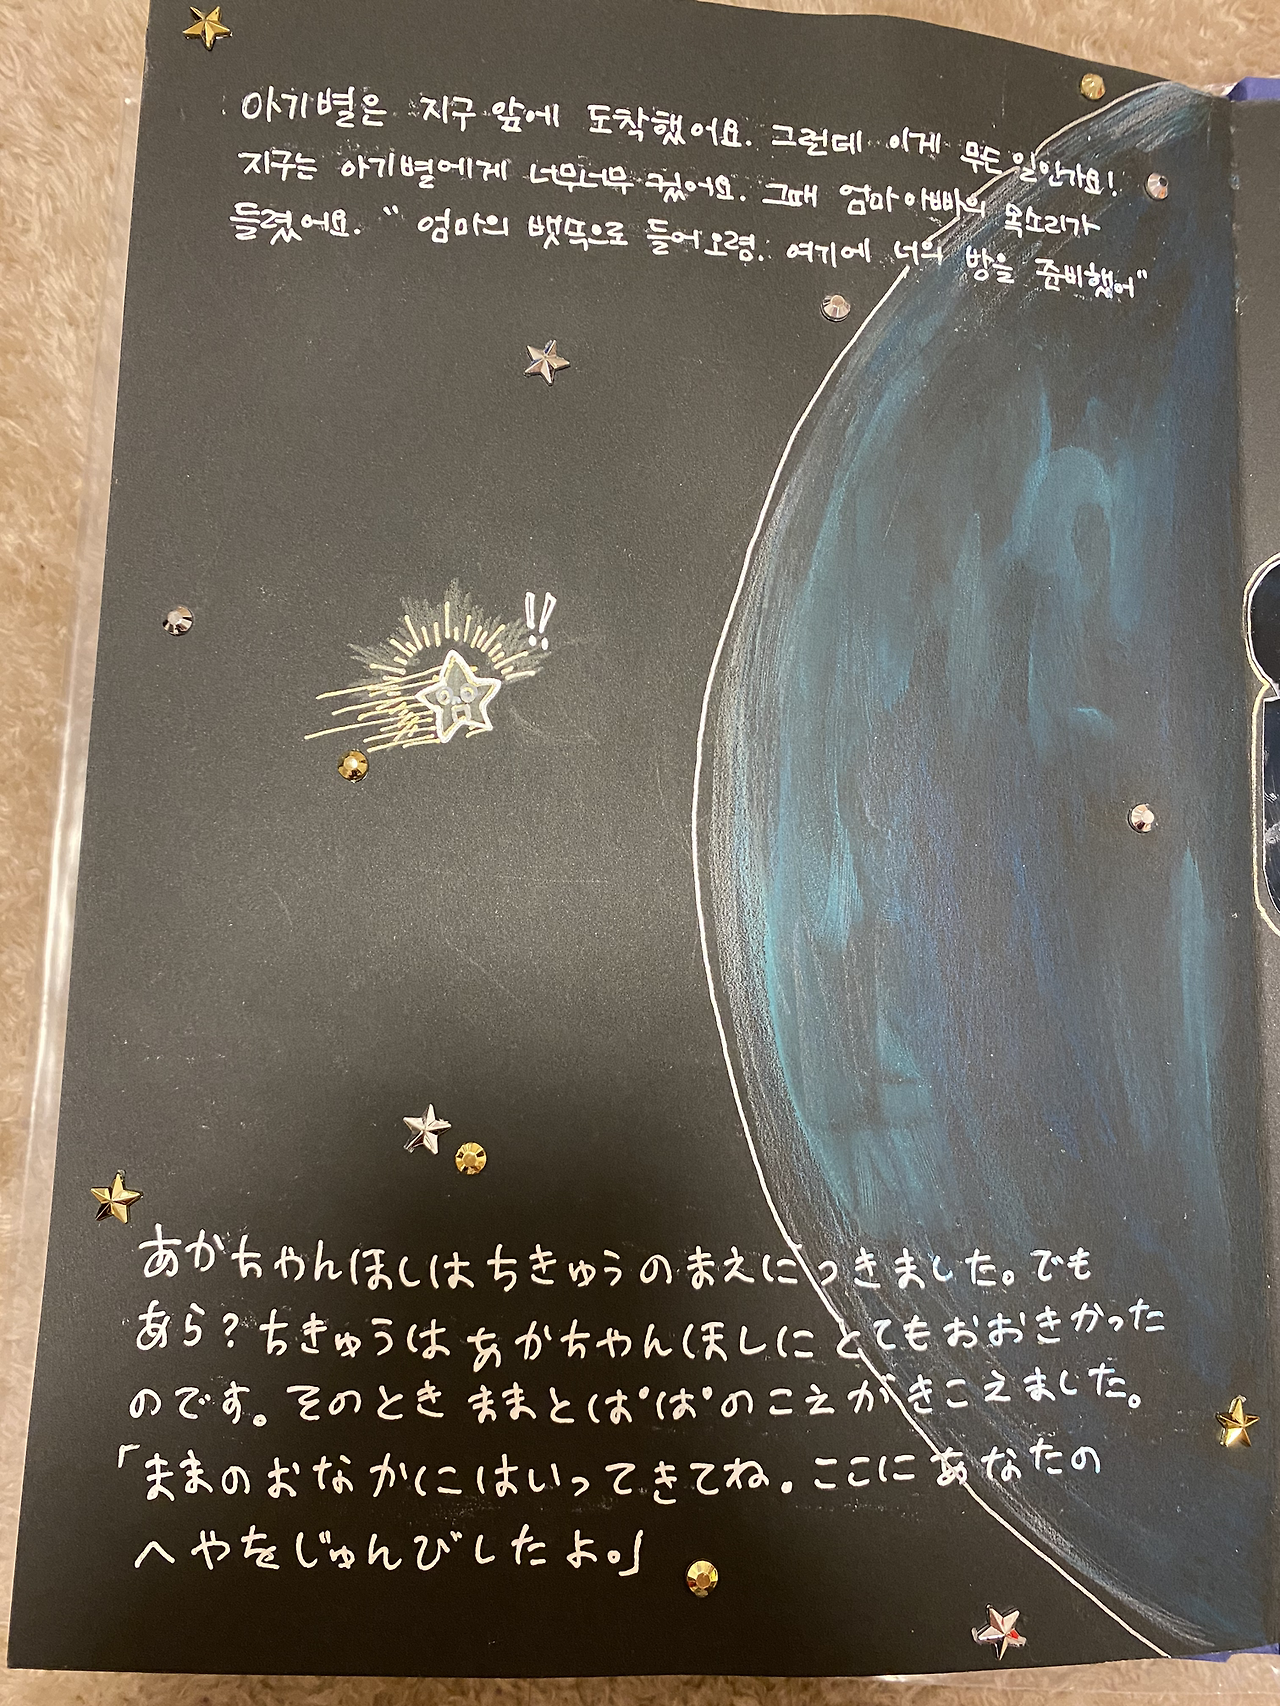 아기별은 지구 앞에 도착했어요. 그런데 이게 무슨 일인가요!
지구는 아기별에게 너무너무 컸어요. 그때 엄마아빠의 목소리가
들렸어요. " 엄마의 뱃속으로 들어오렴. 여기에 너의 방을 준비했어"
!!
あかちゃんほしはちきゅうのまえにつきました。でも
あら?ちきゅうはあかちゃんほしにとてもおおきかった
のです。そのときままとぱぱのこえがきこえました。
「ままのおなかにはいってきてね。ここにあなたの
へやをじゅんびしたよ。」